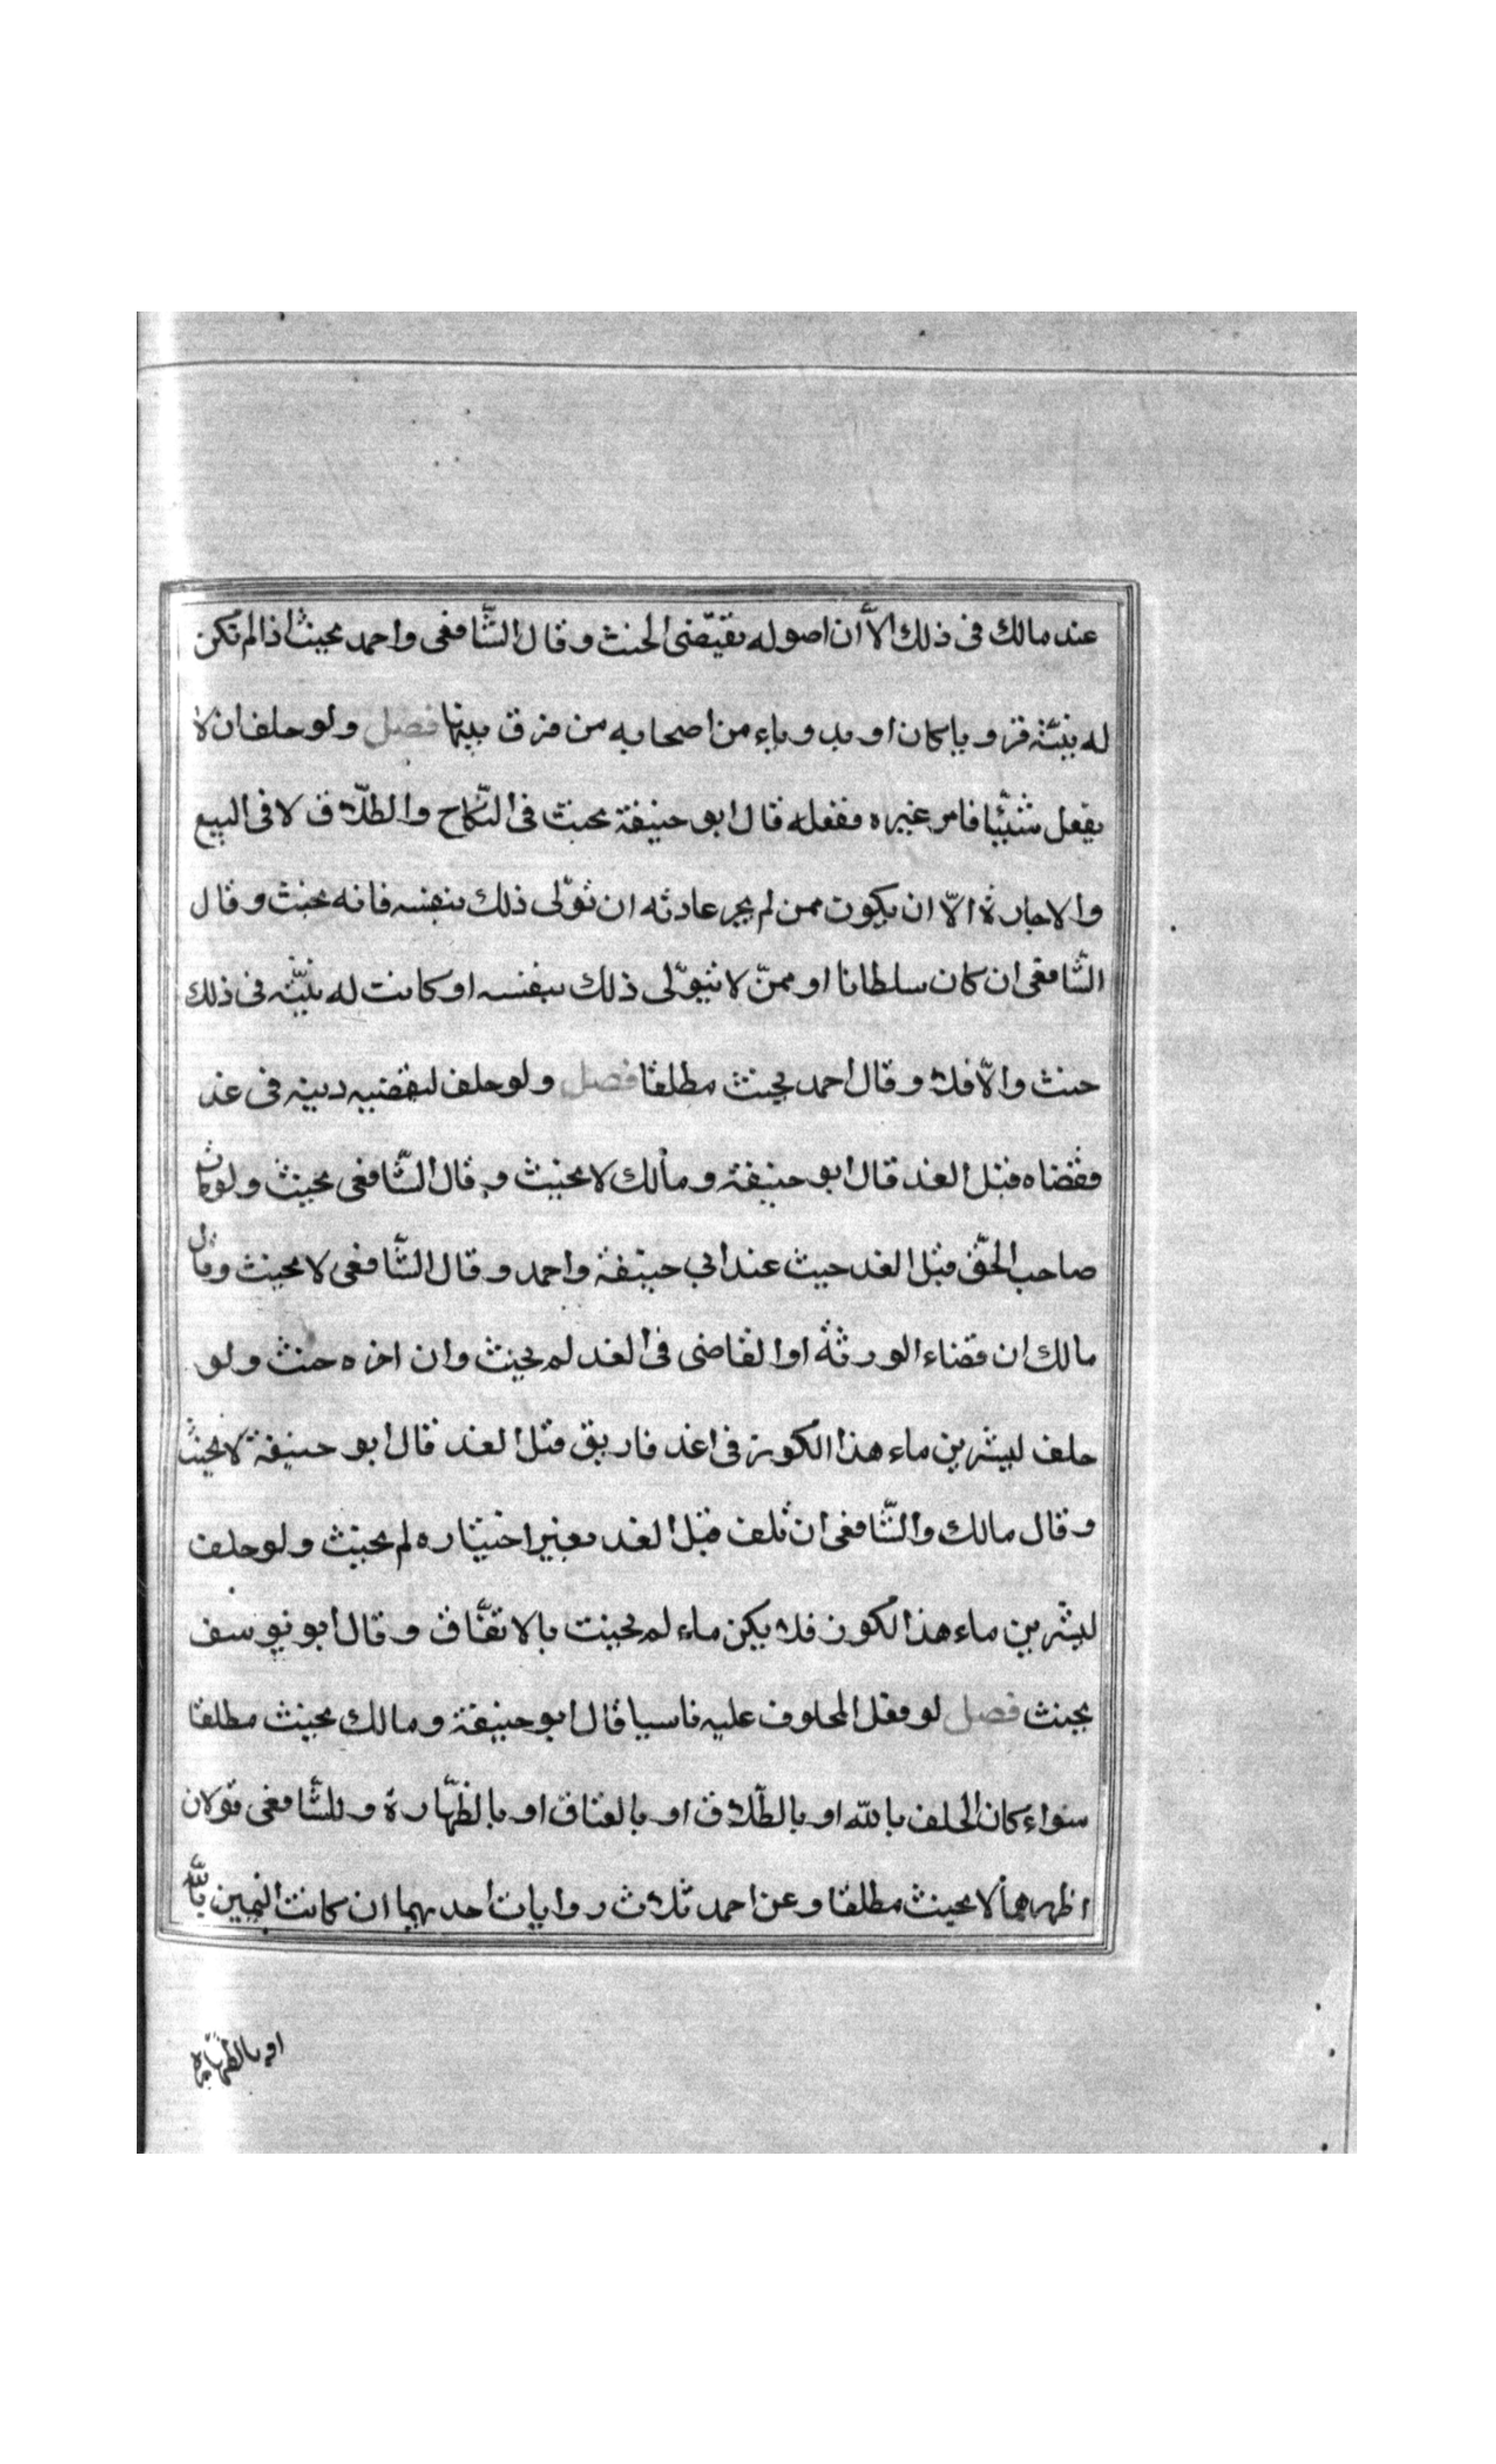 عند مالك فى ذلك الاّ ان اصوله تقتضى الحنث و قال الشّافعى و احمد يحنث اذا لم تكن
له نيّة قرويا كان او بدويا ومن اصحابه من فرق بينهما فصل ولو حلف ان لا
يفعل شيئا فامر غيره ففعله قال ابو حنيفة يحنث فى النّكاح والطّلاق لا فى البيع
والاجارة الاّ ان يكون ممن لم يجر عادته ان تولّى ذلك بنفسه فانه يحنث وقال
الشّافعى ان كان سلطانا او ممنّ لا يتولّى ذلك بنفسه او كانت له نيّة فى ذلك
حنث والاّ فلا وقال احمد يحنث مطلقا فصل ولو حلف ليقضيه دينه فى غد
فقضاه قبل الغد قال ابو حنيفة ومالك لا يحنث وقال الشّافعى يحنث ولو مات
صاحب الحقّ قبل الغد حيث عند ابى حنيفة واحمد وقال الشّافعى لا يحنث وقال
مالك ان قضاء الورثة او القاضى فى الغد لم يحنث وان اخره حنث ولو
حلف ليشربن ماء هذا الكوز فى اغد فاريق قبل الغد قال ابو حنيفة لا يحنث
وقال مالك والشّافعى ان تلف قبل الغد بغير اختياره لم يحنث ولو حلف
ليشربن ماء هذا الكوز فلا يكن ماء لم يحنث بالاتفّاق وقال ابو يوسف
يحنث فصل لو فعل المحلوف عليه ناسيا قال ابو حنيفة ومالك يحنث مطلقا
سواء كان الحلف بالله او بالطّلاق او بالعتاق او بالظهّارة وللشّافعى قولان
اظهرهما لا يحنث مطلقا وعن احمد ثلاث روايات احديهما ان كانت اليمين بالله
او بالظهّارة